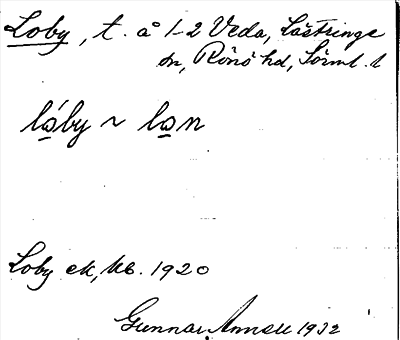 Loby, t. å 1-2 Veda, Lästringe
sn, Rönö hd, Sörml. l
ló̱by ~ lo̱n
Loby ek, kb. 1920
Gunnar Annell 1932